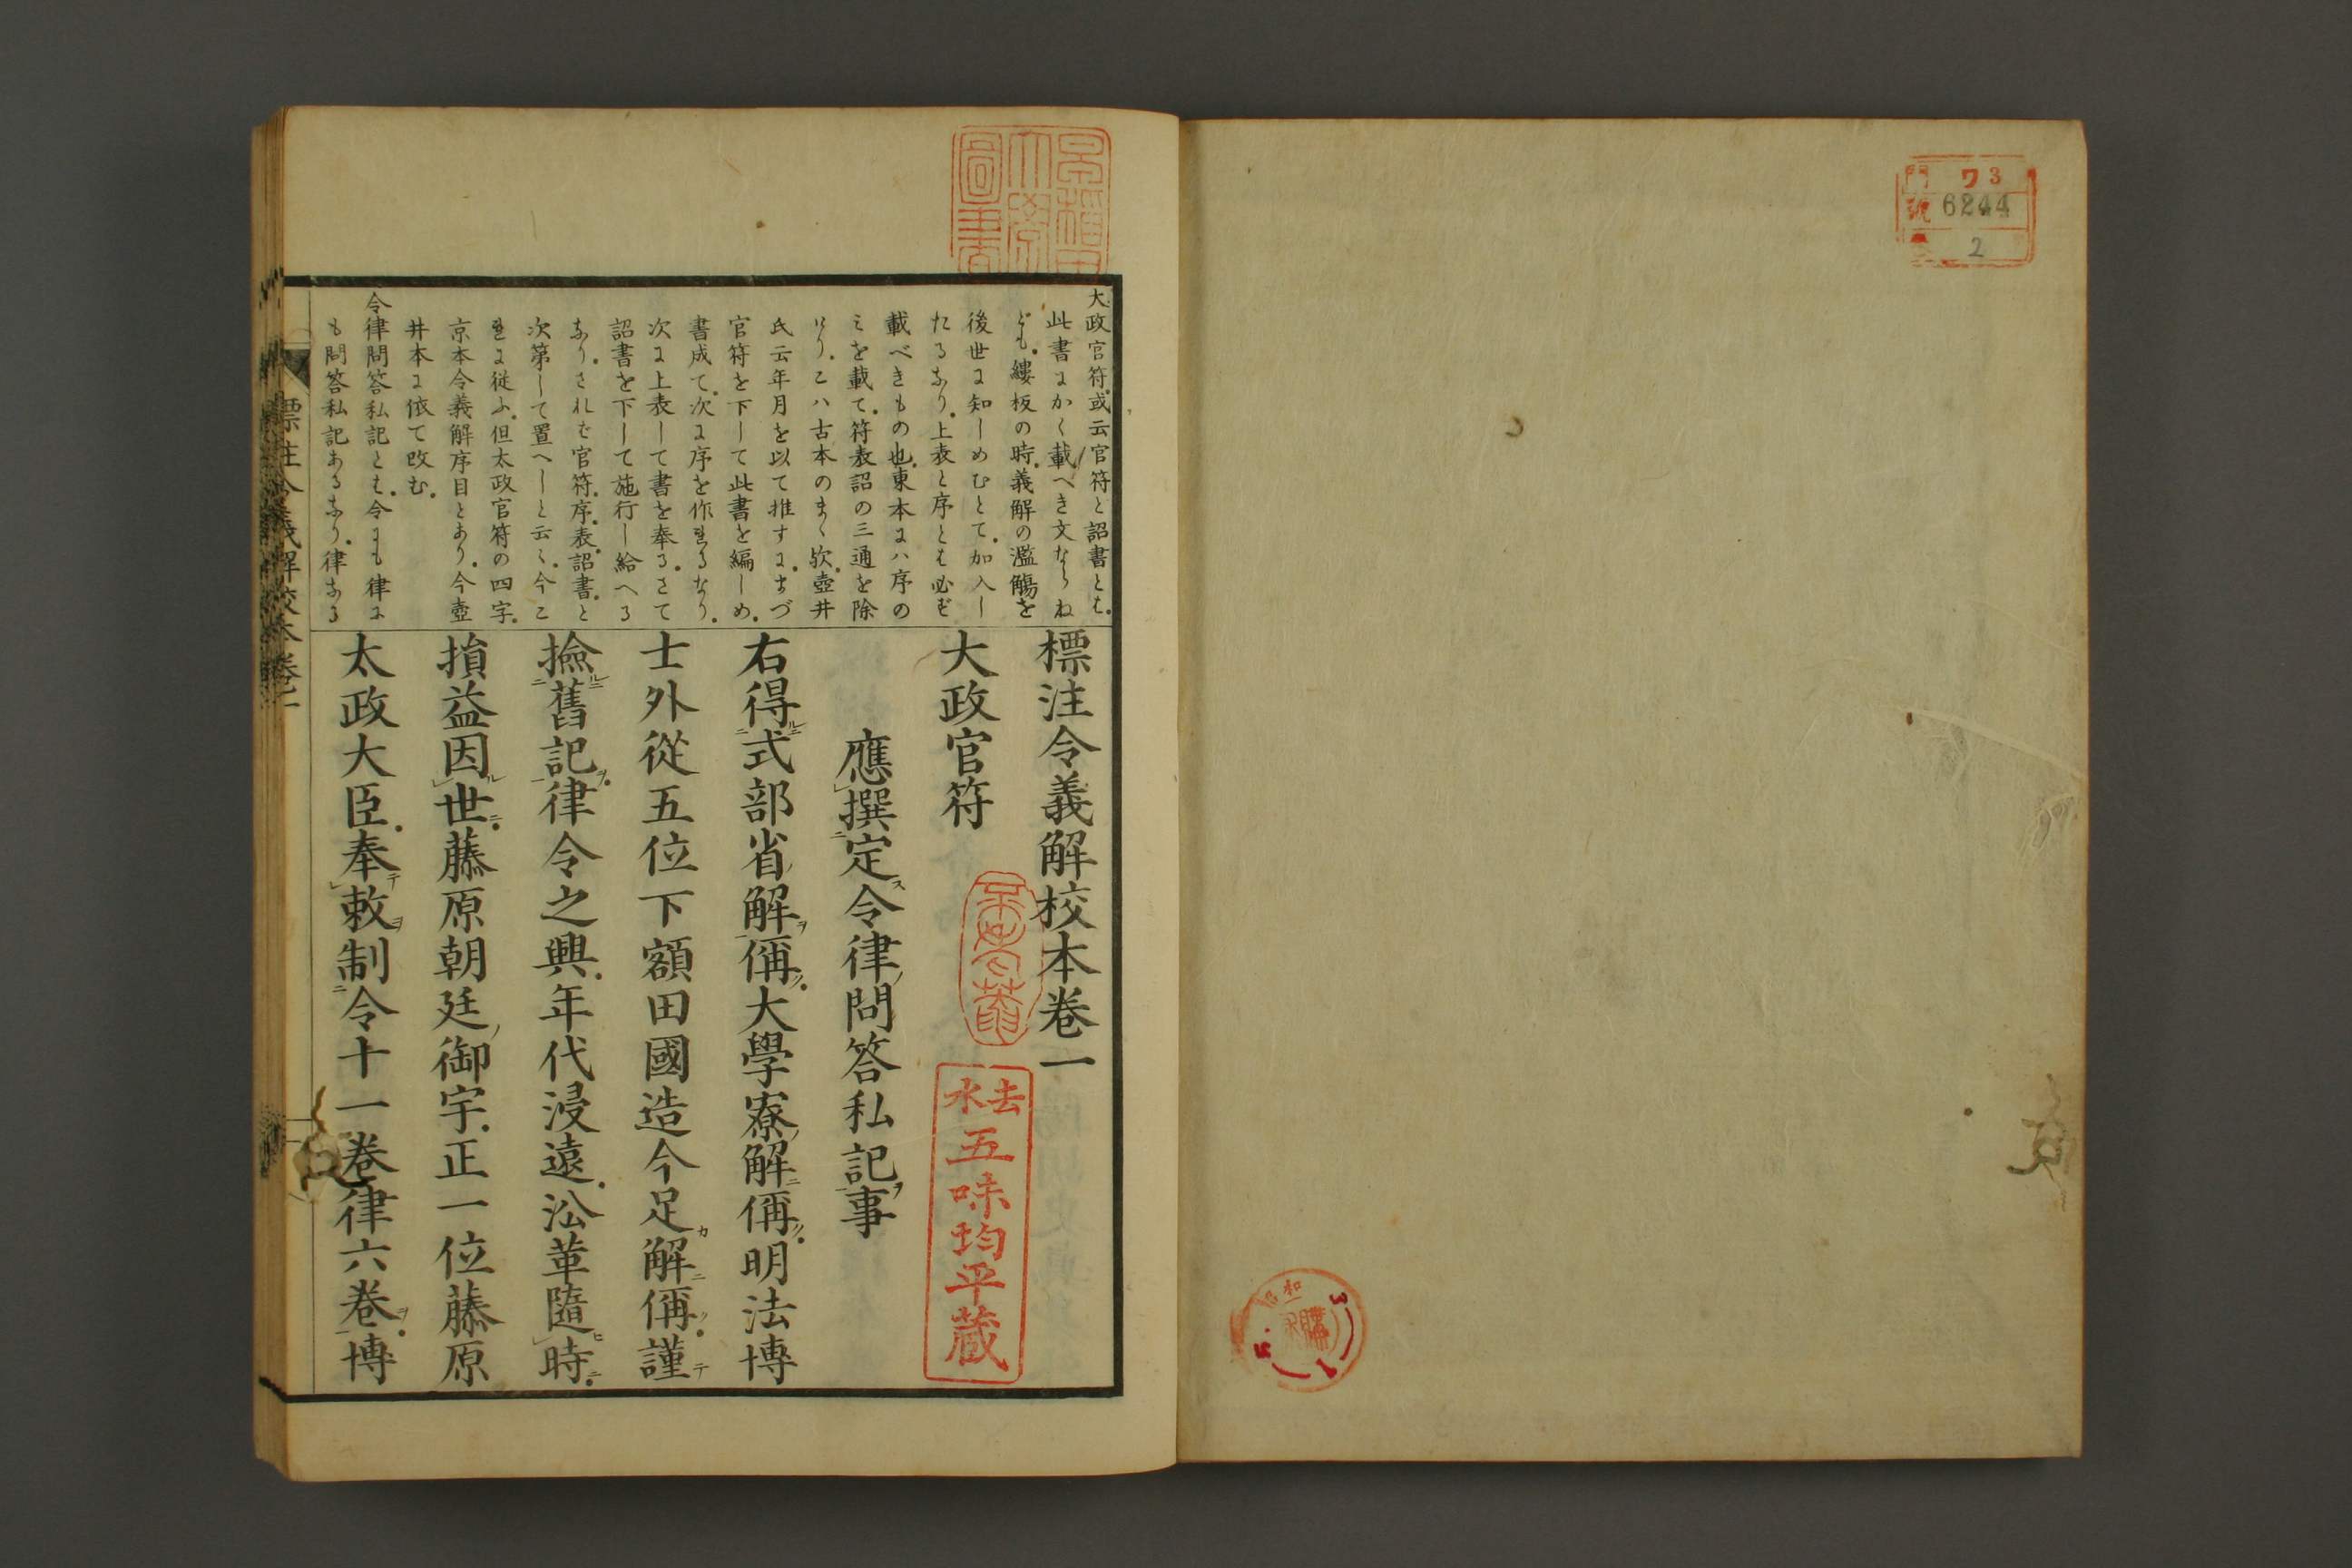 門 ワ3
號 6244
2
昭和
購
早稲田
大學
圖書
大政官符。或云官符と詔書とは。
此書にかく載べき文ならね
ども。鏤板の時。義解の濫觴を
後世に知しめむとて。加入し
たるなり。上表と序とは必ず
載べきもの也。東本にハ序の
ミを載て。符表詔の三通を除
けり。こハ古本のまゝ歟。壺井
氏云年月を以て推すに。まづ
官符を下して此書を編しめ。
書成て。次に序を作れるなり。
次に上表して書を奉る。さて
詔書を下して施行し給へる
なり。されば官符。序。表。詔書。と
次第して置へしと云々。今こ
れに従ふ。但太政官符の四字。
京本令義解序目とあり。今壺
井本に依て改む。
令律問答私記とは。令にも律に
も問答私記あるなり。律なる
標注令義解校本卷一
大政官符
應撰定令律問答私記事
右得式部省解偁。大學寮解偁。明法博
士外從五位下額田國造今足解偁。謹
撿舊記。律令之興。年代浸遠。沿革隨時。
損益因世。藤原朝廷御宇。正一位藤原
太政大臣。奉敕制令十一卷律六卷。博
去水
五味均平藏
標註令義解校本 卷一